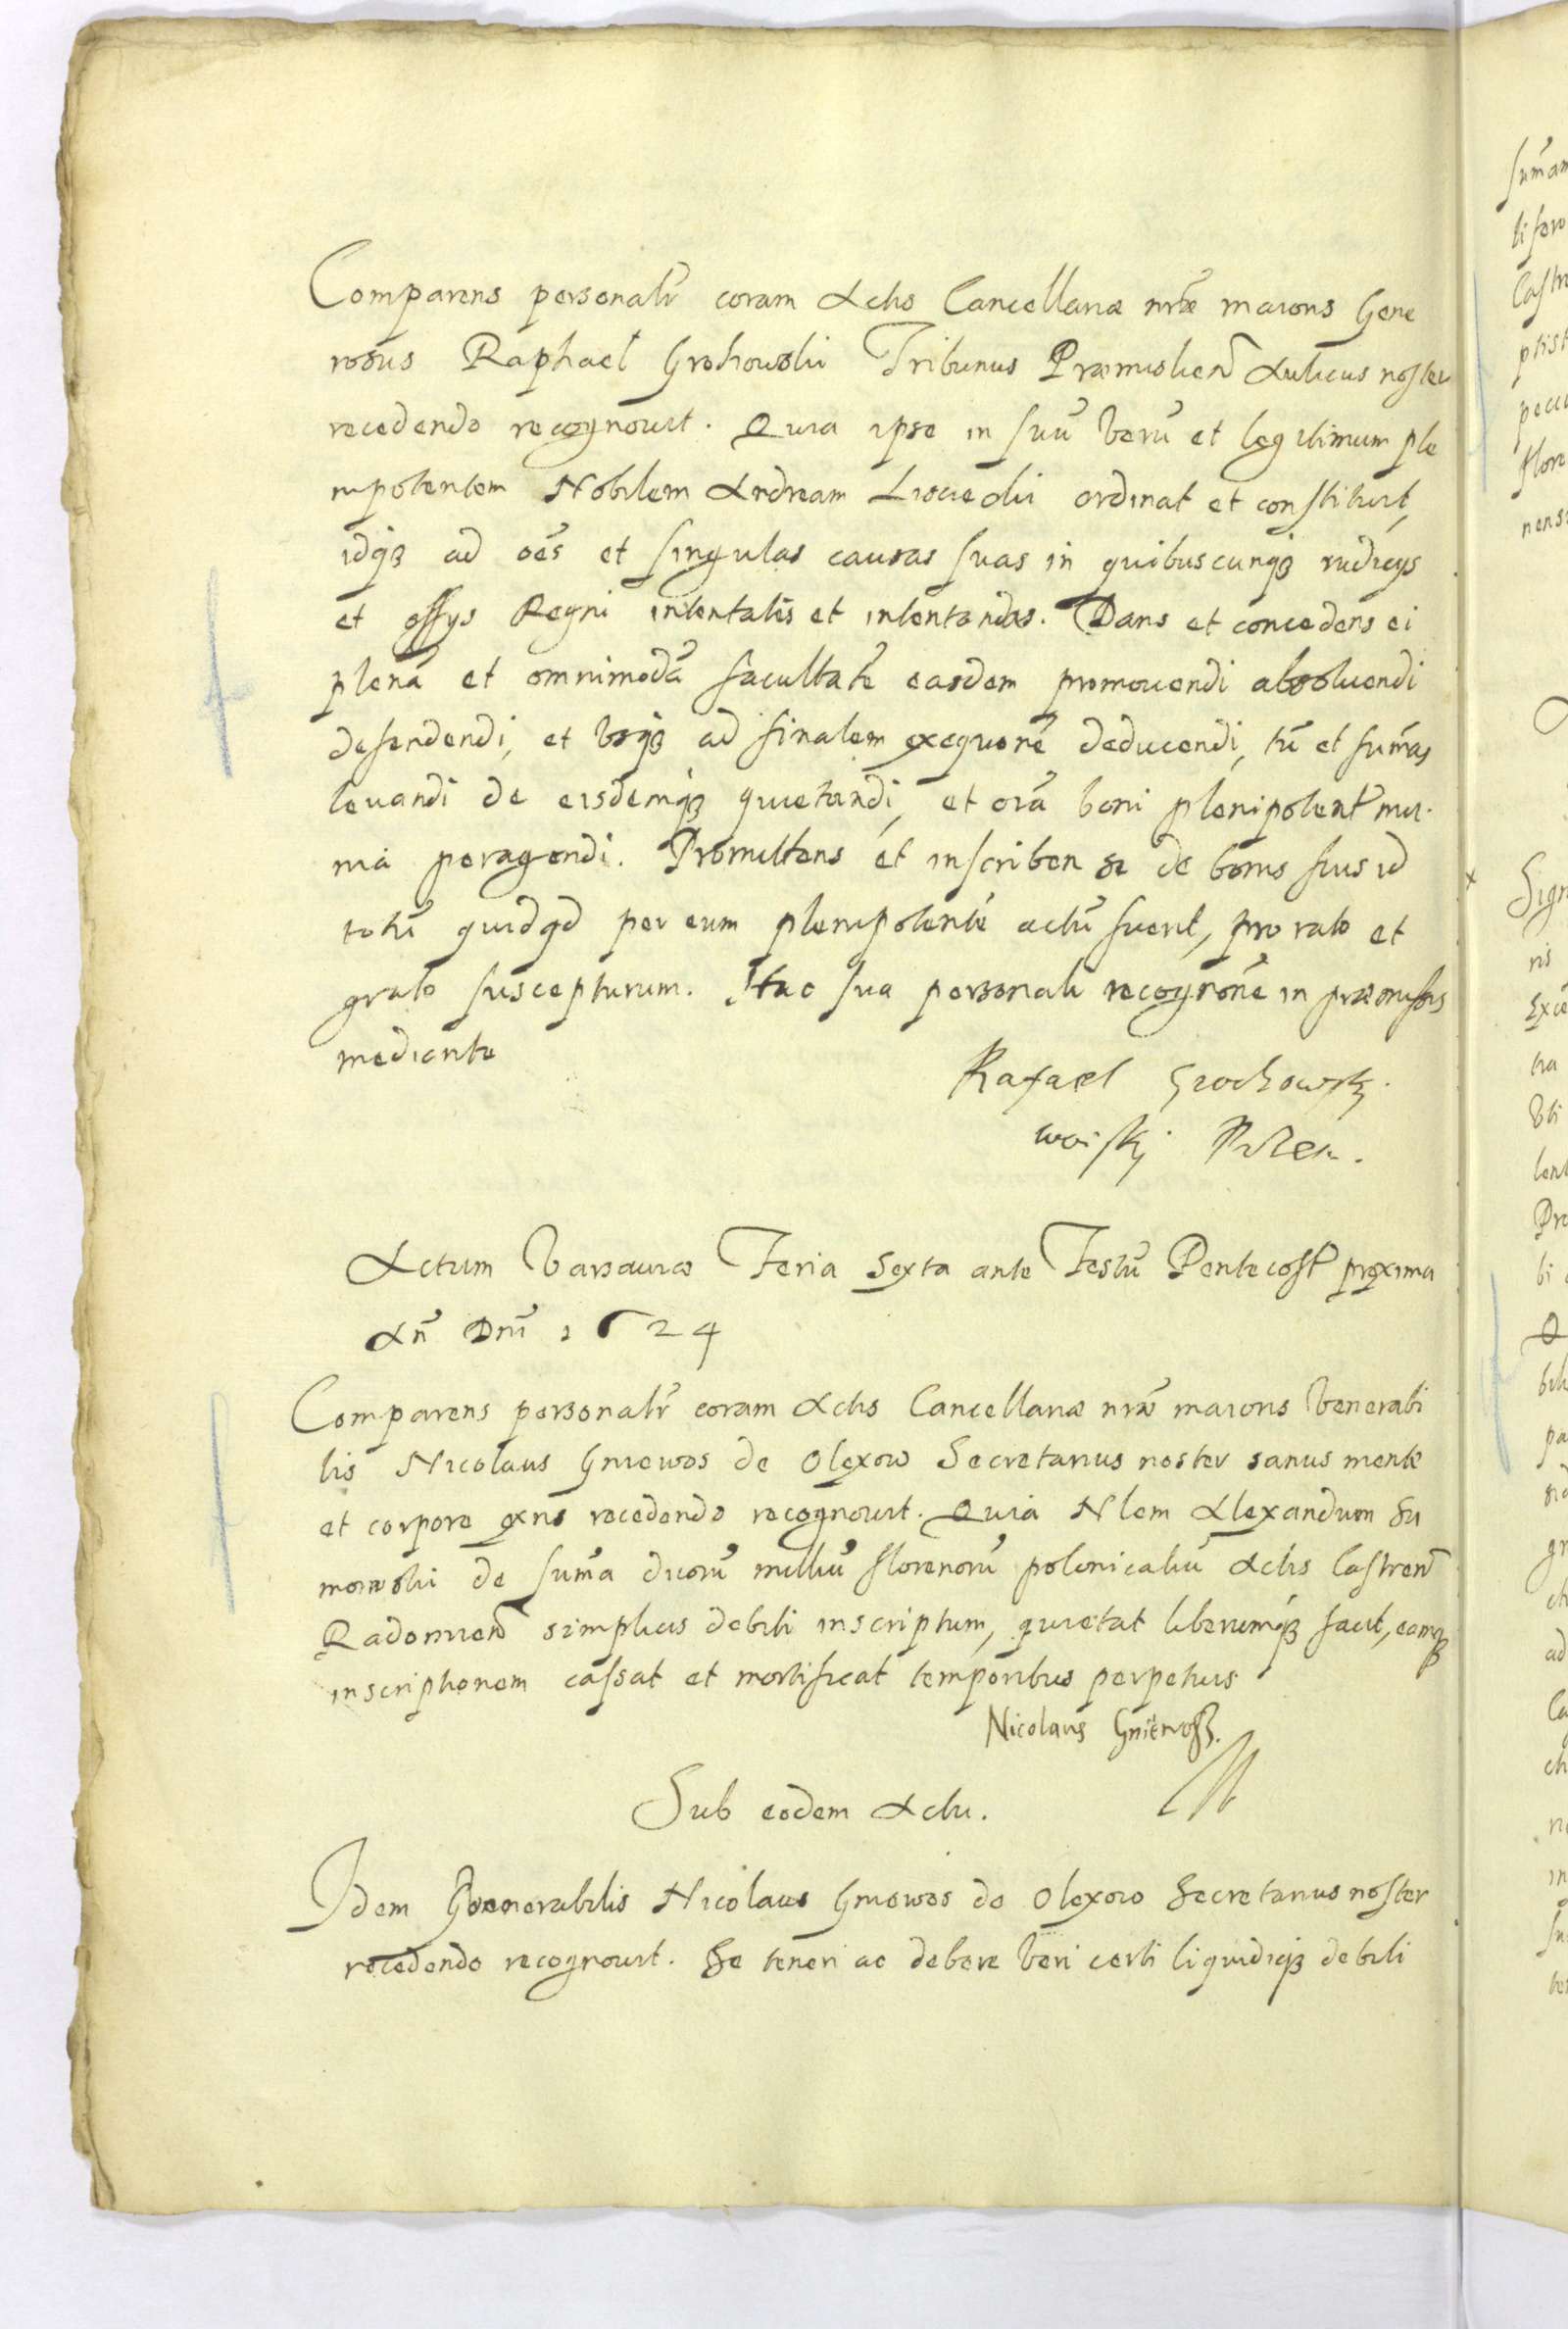 Comparens personalr̃ coram Actis Cancellariæ nræ maioris Gene
rosus Raphael Grochowski Tribunus Præmislien̄ Aulicus noster
recedendo recognouit. Quia ipse in suū verū et legitimum ple
nipotentem Nobilem Andream ordinat et constituit,
idq₃ ad oēs et singulas causas suas in quibuscunq₃ iudicijs
et offijs Regni intentatis et intentandas. Dans et concedens ei
plenā et omnimodā facultatē easdem promouendi absoluendi
defendendi, et vsq₃ ad finalem exequōnē deducendi, tū et sum̄as
leuandi de eisdemq₃ quietandi, et oīa boni plenipotent mu
nia peragendi. Promittens et inscriben se de bonis suis id
totū quidqd per eum plenipotentē actū fuerit, pro rato et
grato suscepturum. Hac sua personali recognōne in præmissis
mediante
Rafael Grochowsky
woiski Przem.
Actum Varsauiæ Feria Sexta ante Festū Pentecost proxima
An̄ Dnī 1624
Comparens personalr̃ coram Actis Cancellariæ nræ maioris Venerabi
lis Nicolaus Gniewos de Olexow Secretarius noster sanus mente
et corpore exns recedendo recognouit. Quia Nlem Alexandrum Su
mowski de sum̄a duorū milliū florenorū polonicaliū Actis Castren̄
Radomien̄ simplicis debiti inscriptum, quietat liberumq₃ facit, eamq₃
inscriptionem cassat et mortificat temporibus perpetuis
Nicolaus Gniewoss.
Sub eodem Actu.
Idem Venerabilis Nicolaus Gniewos de Olexow Secretarius noster
recedendo recognouit. Se teneri ac debere veri certi liquidiq₃ debiti